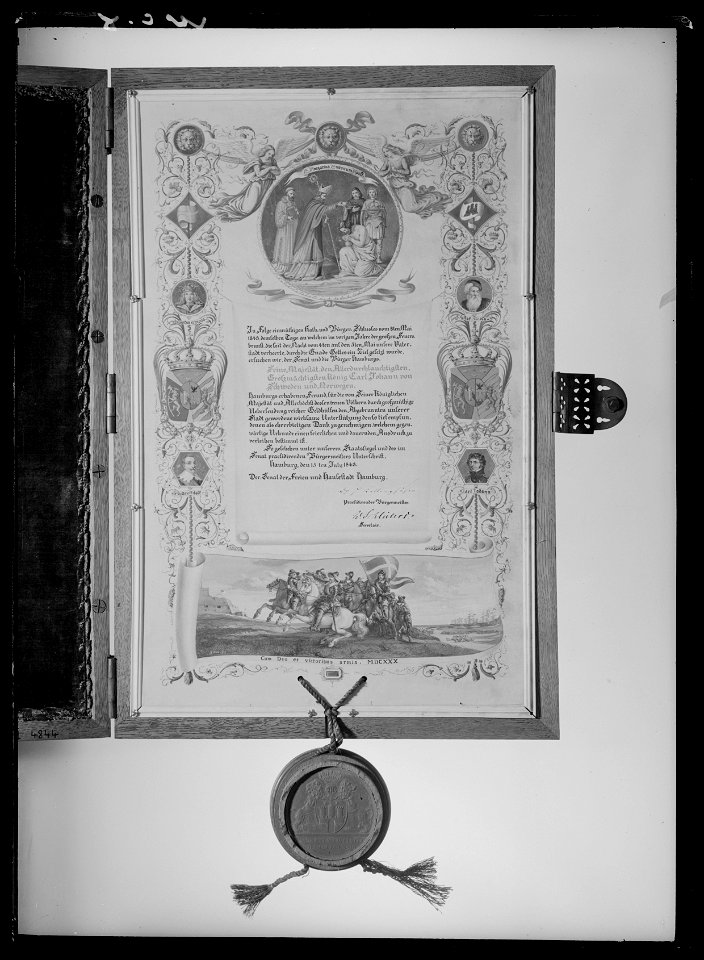 In Folge einmüthigen Rath- und Bürger-Schlusses vom 5ten Mai
1843, demselben Tage an welchem im vorigen Jahre der großen Feuers-
brunst, die seit der Nacht vom 4ten auf den 5ten Mai unsere Vater-
stadt verheerte, durch die Gnade Gottes ein Ziel gesetzt wurde,
ersuchen wir, der Senat und die Bürger Hamburgs,
Seine Majestät den Allerdurchlauchtigsten,
Großmächtigsten König Carl Johann von
Schweden und Norwegen,
Hamburgs erhabenen Freund, für die von Seiner Königlichen
Majestät und Allerhöchst dessen treuen Völkern durch großmüthige
Uebersendung reicher Geldhülfen den Abgebrannten unserer
Stadt gewordene wirksame Unterstützung den so tiefempfun-
denen als ehrerbietigen Dank zu genehmigen, welchem gegen-
wärtige Urkunde einen feierlichen und dauernden Ausdruck zu
verleihen bestimmt ist.
So geschehen unter unserem Staatssiegel und des im
Senat praesidirenden Bürgermeisters Unterschrift.
Hamburg, den 15ten July 1843.
Der Senat der Freien und Hansestadt Hamburg.
Praesidirender Bürgermeister
Secretair.
Cum Deo et victricibus armis. MDCXXX
4844